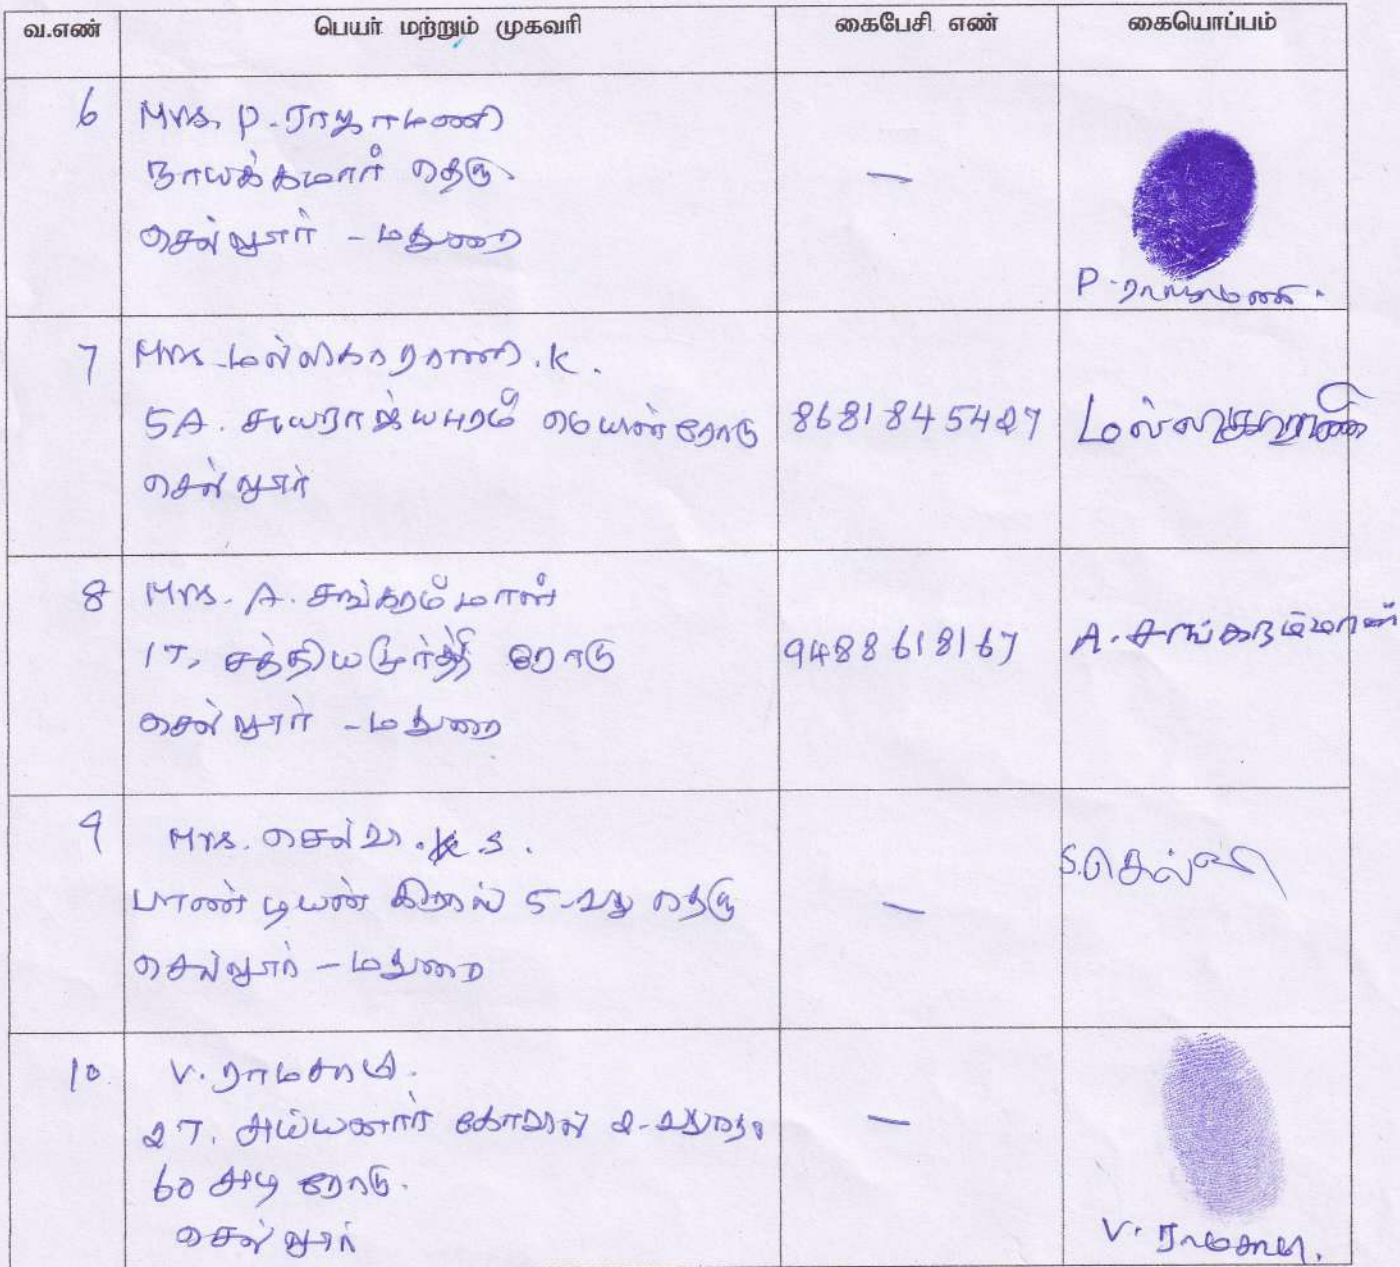 வ.எண் பெயர் மற்றும் முகவரி கைபேசி எண் கையொப்பம்
6 Mrs. P. ராஜாமணி
நாயக்கமார் தெரு
செல்லூர் - மதுரை
—
P. ராஜாமணி.
7 Mrs. மல்லிகாராணி. K.
5A. சுயராஜ்யபுரம் மெயின்ரோடு 8681845427 மல்லிகாராணி
செல்லூர்
8 Mrs. A. சங்கரம்மாள்
17, சத்தியமூர்த்தி ரோடு 9488618167 A. சங்கரம்மாள்
செல்லூர் - மதுரை
9 Mrs. செல்வி. S. S.செல்வி
பாண்டியன் 5-வது தெரு —
செல்லூர் - மதுரை
10. V. ராமசாமி.
27. அய்யனார் கோவில் 2-வது தெ —
60 அடி ரோடு.
செல்லூர்
V. ராமசாமி.